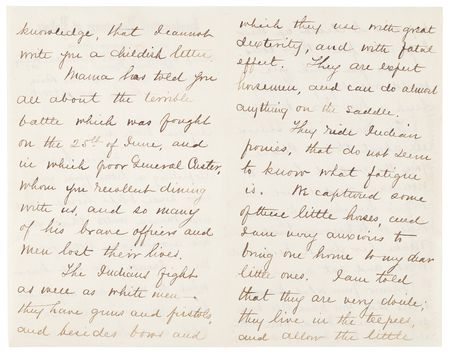 knowledge, that I cannot
write you a childish letter.
Mama has told you
all about the terrible
battle which was fought
on the 25th of June, and
in which poor General Custer,
whom you recollect dining
with us, and so many
of his brave officers and
men lost their lives.
The Indians fight
as well as white men —
they have guns and pistols,
and besides bows and
which they use with great
dexterity, and with fatal
effect. They are expert
horsemen, and can do almost
anything on the saddle.
They ride Indian
ponies, that do not seem
to know what fatigue
is. We captured some
of these little horses, and
I am very anxious to
bring one home to my dear
little ones. I am told
that they are very docile;
they live in the tepees,
and allow the little